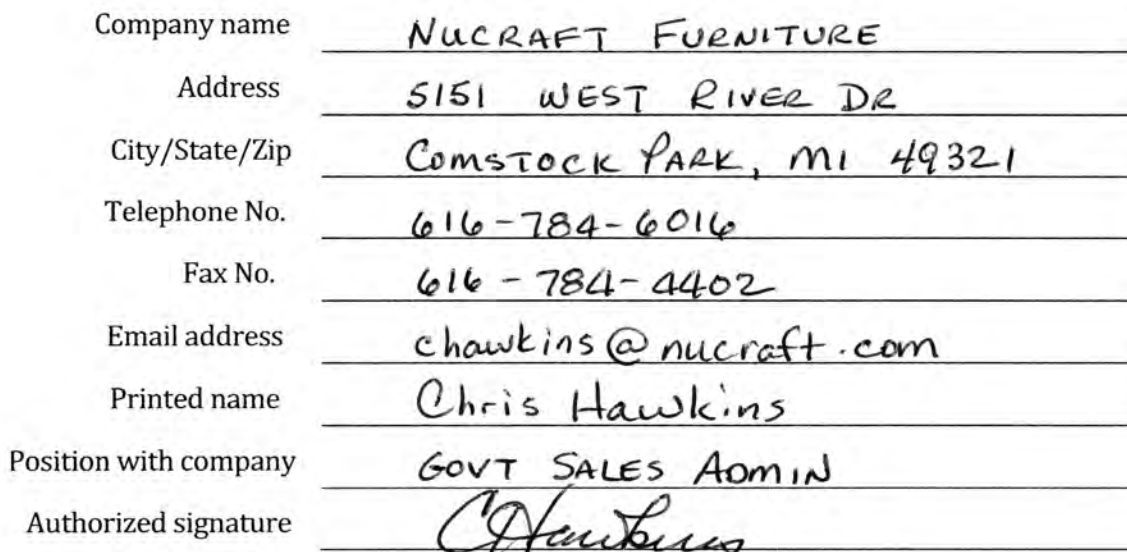 Company name NUCRAFT FURNITURE
Address 5151 WEST RIVER DR
City/State/Zip COMSTOCK PARK, MI 49321
Telephone No. 616-784-6016
Fax No. 616-784-4402
Email address chawkins@nucraft.com
Printed name Chris Hawkins
Position with company GOVT SALES ADMIN
Authorized signature CHawkins